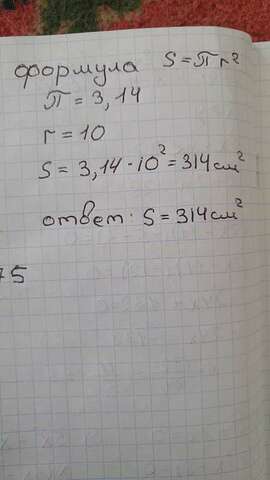 формула S = π r²
π = 3,14
r = 10
S = 3,14 · 10² = 314 см²
ответ: S = 314 см²
75